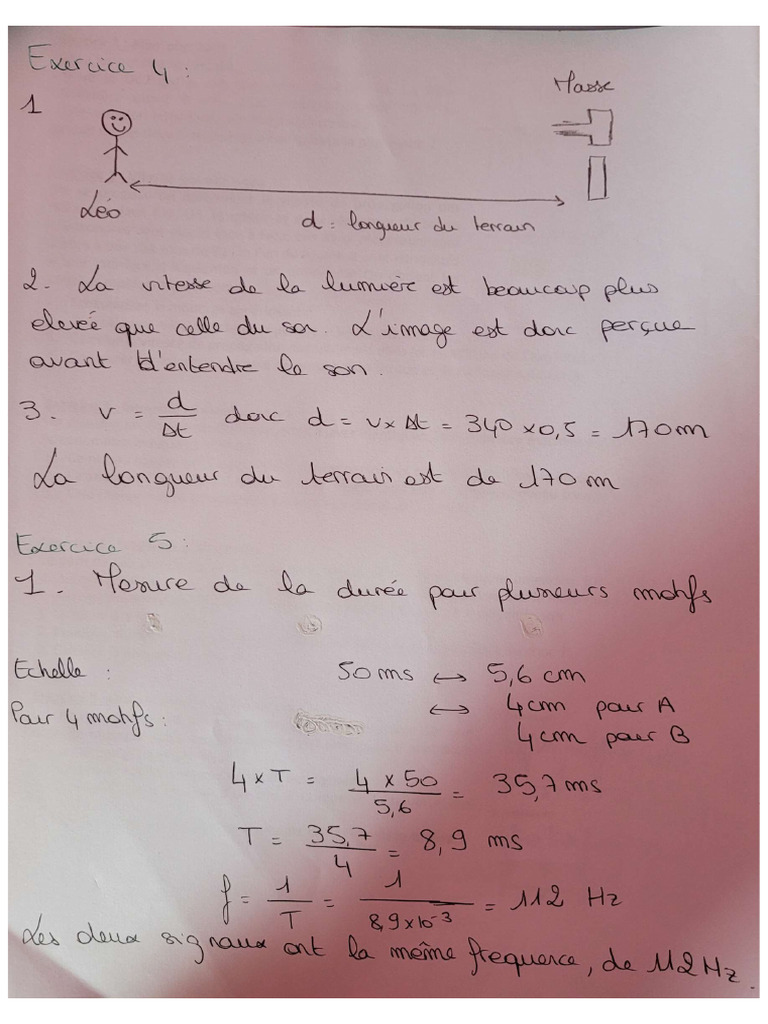 Exercice 4 :
1
Masse
Léo
d : longueur du terrain
2. La vitesse de la lumière est beaucoup plus
elevée que celle du son. L'image est donc perçue
avant d'entendre le son.
3. v = d/Δt donc d = v × Δt = 340 × 0,5 = 170 m
La longueur du terrain est de 170 m
Exercice 5 :
1. Mesure de la durée pour plusieurs motifs
Echelle : 50 ms ↔ 5,6 cm
Pour 4 motifs : ↔ 4 cm pour A
4 cm pour B
4 × T = 4 × 50 / 5,6 = 35,7 ms
T = 35,7 / 4 = 8,9 ms
f = 1/T = 1 / 8,9 × 10⁻³ = 112 Hz
Les deux signaux ont la même frequence, de 112 Hz.